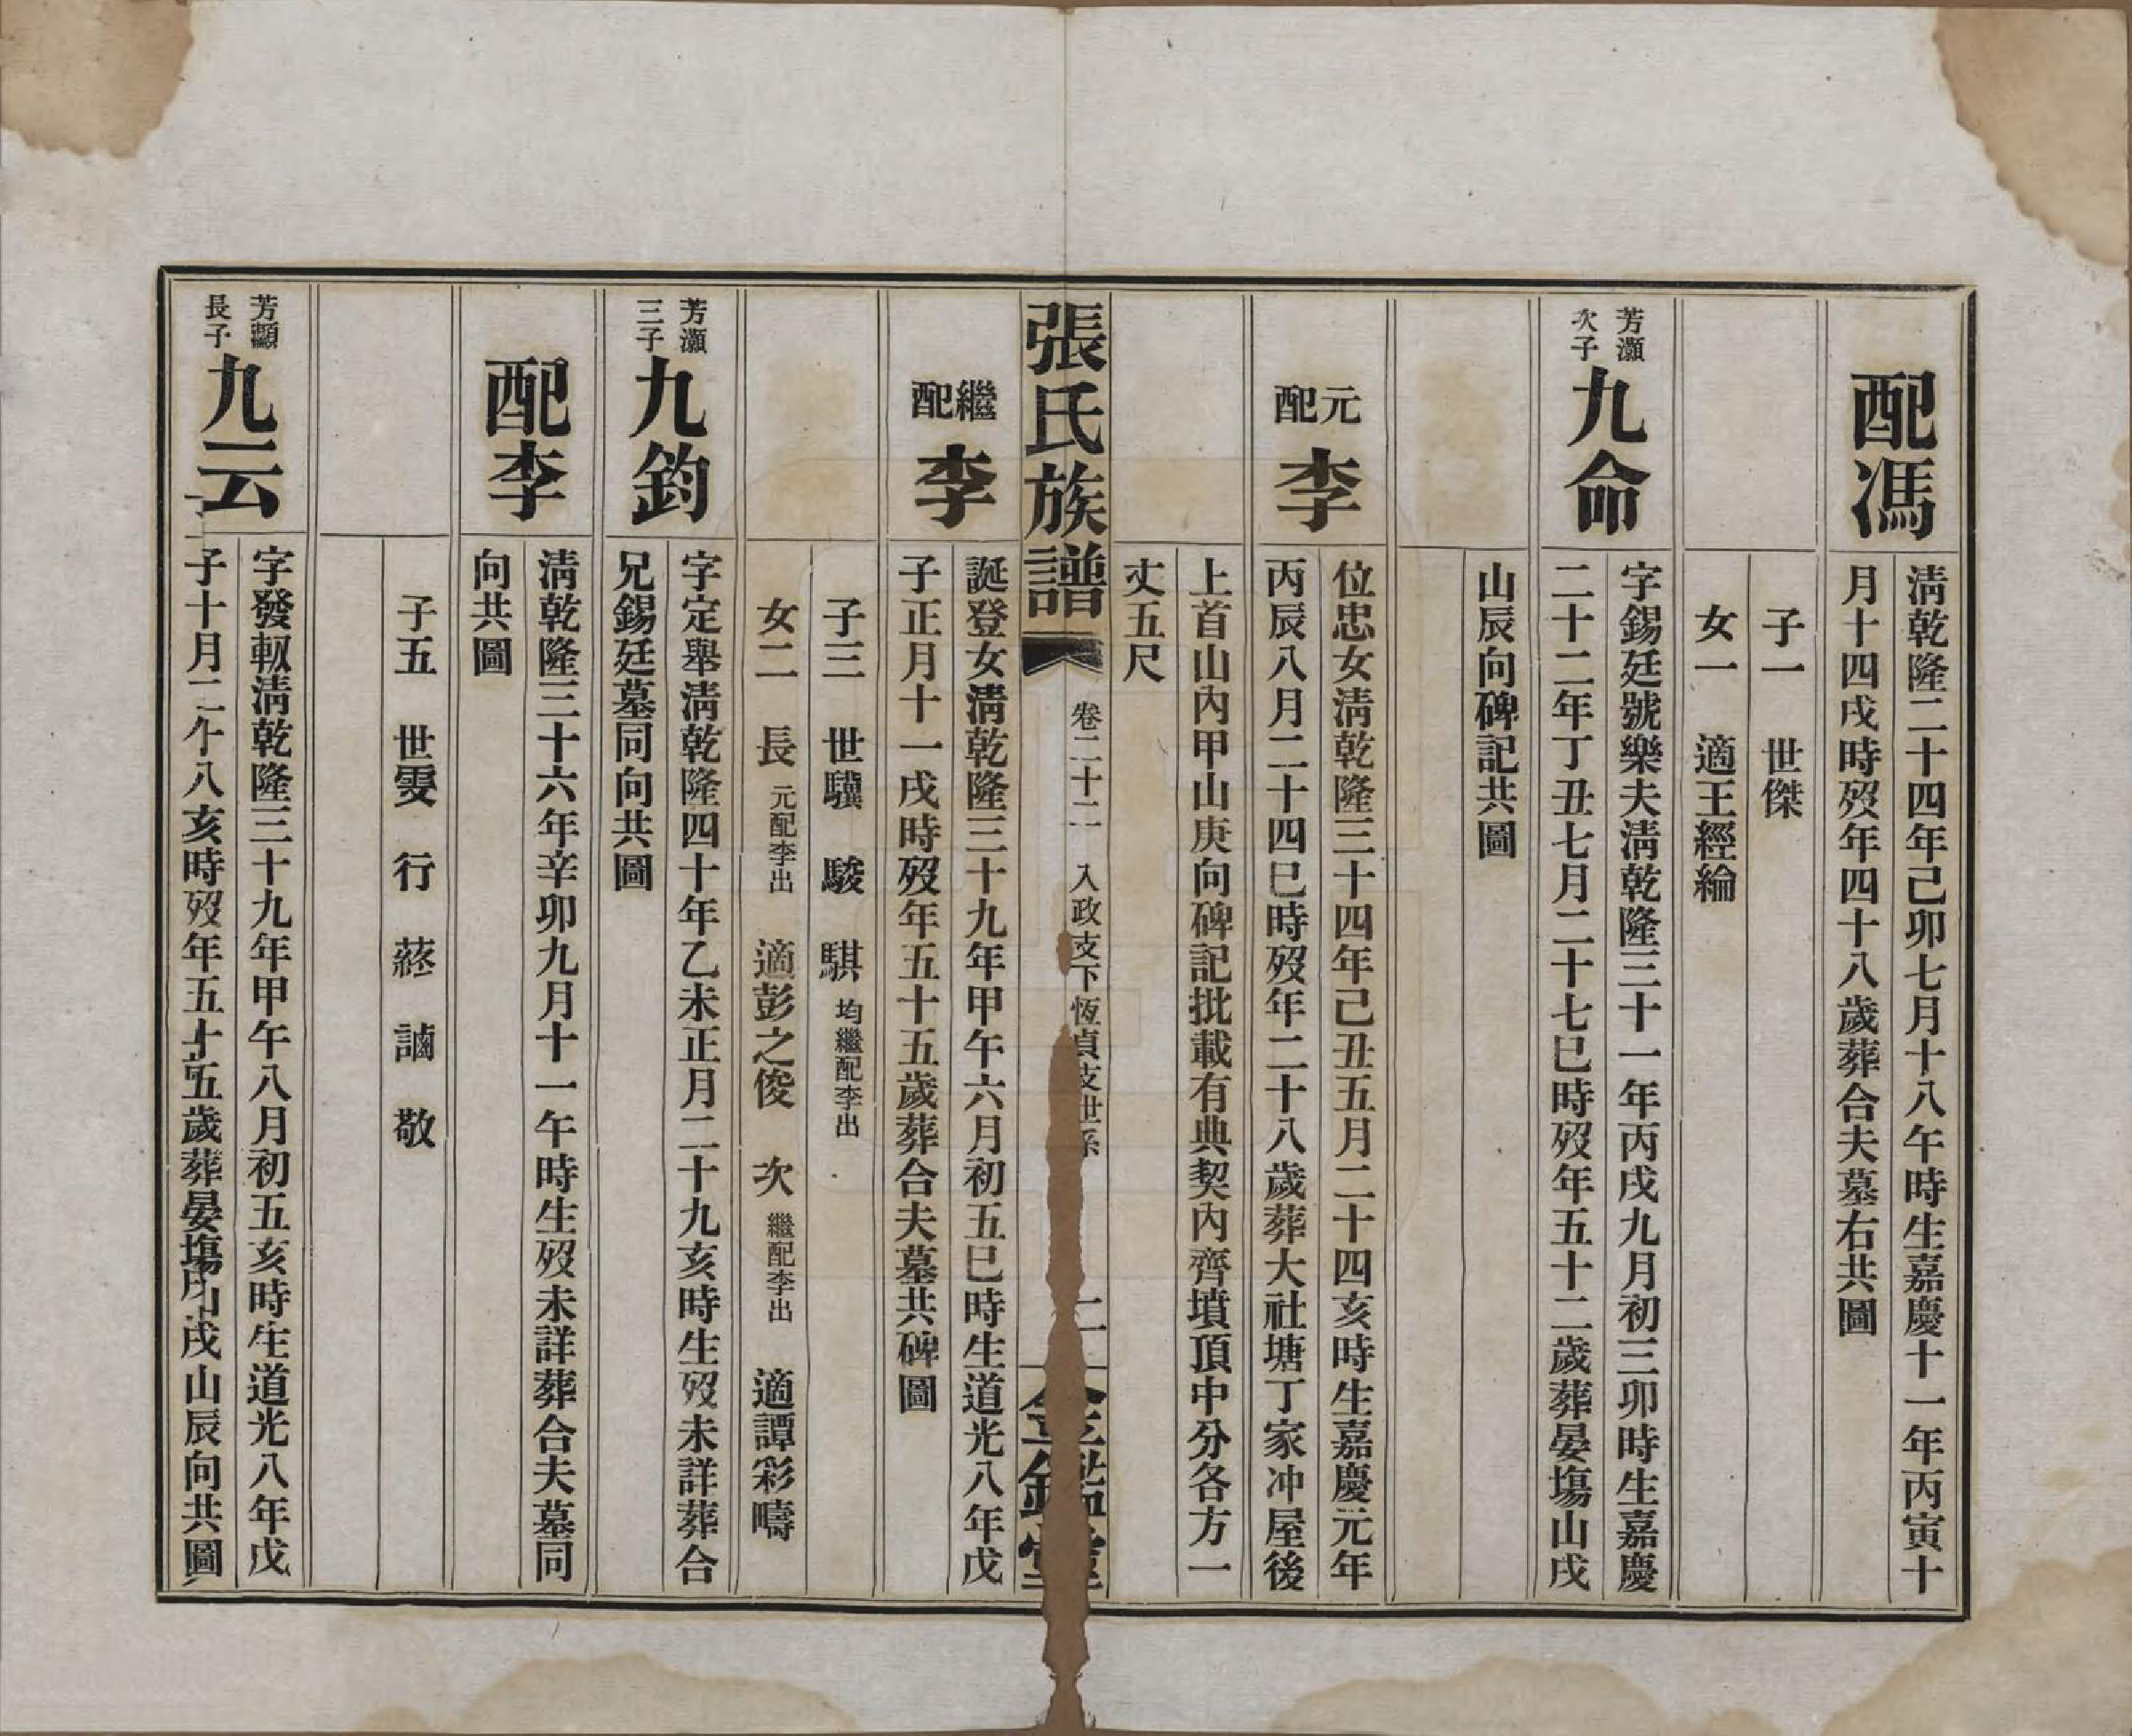 配馮
淸乾隆二十四年己卯七月十八午時生嘉慶十一年丙寅十
月十四戌時歿年四十八歲葬合夫墓右共圖
子一　世傑
女一　適王經綸
芳灝
次子
九命
字錫廷號樂夫淸乾隆三十一年丙戌九月初三卯時生嘉慶
二十二年丁丑七月二十七巳時歿年五十二歲葬晏塲山戌
山辰向碑記共圖
元配
李
位忠女淸乾隆三十四年己丑五月二十四亥時生嘉慶元年
丙辰八月二十四巳時歿年二十八歲葬大社塘丁家冲屋後
上首山內甲山庚向碑記批載有典契內齊墳頂中分各方一
丈五尺
張氏族譜
卷二十二　入政支下恆貞支世系
二
金鑑堂
繼配
李
誕登女淸乾隆三十九年甲午六月初五巳時生道光八年戊
子正月十一戌時歿年五十五歲葬合夫墓共碑圖
子三　世驥　駿　騏　均繼配李出
女二　長　元配李出　適彭之俊　次　繼配李出　適譚彩疇
芳灝
三子
九鈞
字定舉淸乾隆四十年乙未正月二十九亥時生歿未詳葬合
兄錫廷墓同向共圖
配李
淸乾隆三十六年辛卯九月十一午時生歿未詳葬合夫墓同
向共圖
子五　世雯　行　　　　敬
芳顯
長子
九云
字發軔淸乾隆三十九年甲午八月初五亥時生道光八年戊
子十月二十八亥時歿年五十五歲葬晏塲山戌山辰向共圖